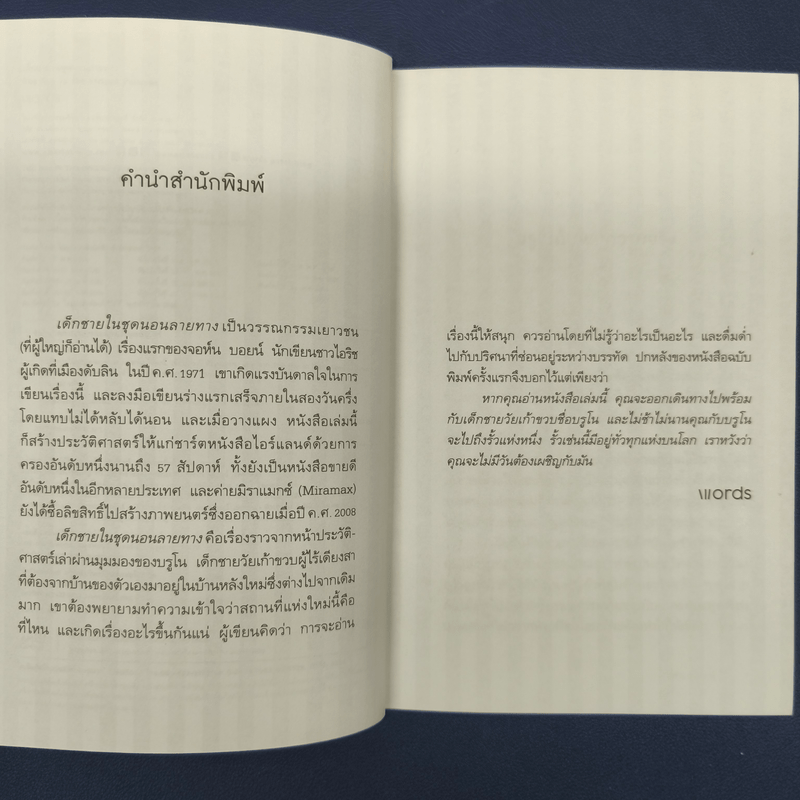 คำนำสำนักพิมพ์
เด็กชายในชุดนอนลายทาง เป็นวรรณกรรมเยาวชน
(ที่ผู้ใหญ่ก็อ่านได้) เรื่องแรกของจอห์น บอยน์ นักเขียนชาวไอริช
ผู้เกิดที่เมืองดับลิน ในปี ค.ศ. 1971 เขาเกิดแรงบันดาลใจในการ
เขียนเรื่องนี้ และลงมือเขียนร่างแรกเสร็จภายในสองวันครึ่ง
โดยแทบไม่ได้หลับได้นอน และเมื่อวางแผง หนังสือเล่มนี้
ก็สร้างประวัติศาสตร์ให้แก่ชาร์ตหนังสือไอร์แลนด์ด้วยการ
ครองอันดับหนึ่งนานถึง 57 สัปดาห์ ทั้งยังเป็นหนังสือขายดี
อันดับหนึ่งในอีกหลายประเทศ และค่ายมิราแมกซ์ (Miramax)
ยังได้ซื้อลิขสิทธิ์ไปสร้างภาพยนตร์ซึ่งออกฉายเมื่อปี ค.ศ. 2008
เด็กชายในชุดนอนลายทาง คือเรื่องราวจากหน้าประวัติ-
ศาสตร์เล่าผ่านมุมมองของบรูโน เด็กชายวัยเก้าขวบผู้ไร้เดียงสา
ที่ต้องจากบ้านของตัวเองมาอยู่ในบ้านหลังใหม่ซึ่งต่างไปจากเดิม
มาก เขาต้องพยายามทำความเข้าใจว่าสถานที่แห่งใหม่นี้คือ
ที่ไหน และเกิดเรื่องอะไรขึ้นกันแน่ ผู้เขียนคิดว่า การจะอ่าน
เรื่องนี้ให้สนุก ควรอ่านโดยที่ไม่รู้ว่าอะไรเป็นอะไร และดื่มด่ำ
ไปกับปริศนาที่ซ่อนอยู่ระหว่างบรรทัด ปกหลังของหนังสือฉบับ
พิมพ์ครั้งแรกจึงบอกไว้แต่เพียงว่า
หากคุณอ่านหนังสือเล่มนี้ คุณจะออกเดินทางไปพร้อม
กับเด็กชายวัยเก้าขวบชื่อบรูโน และไม่ช้าไม่นานคุณกับบรูโน
จะไปถึงรั้วแห่งหนึ่ง รั้วเช่นนี้มีอยู่ทั่วทุกแห่งบนโลก เราหวังว่า
คุณจะไม่มีวันต้องเผชิญกับมัน
Words